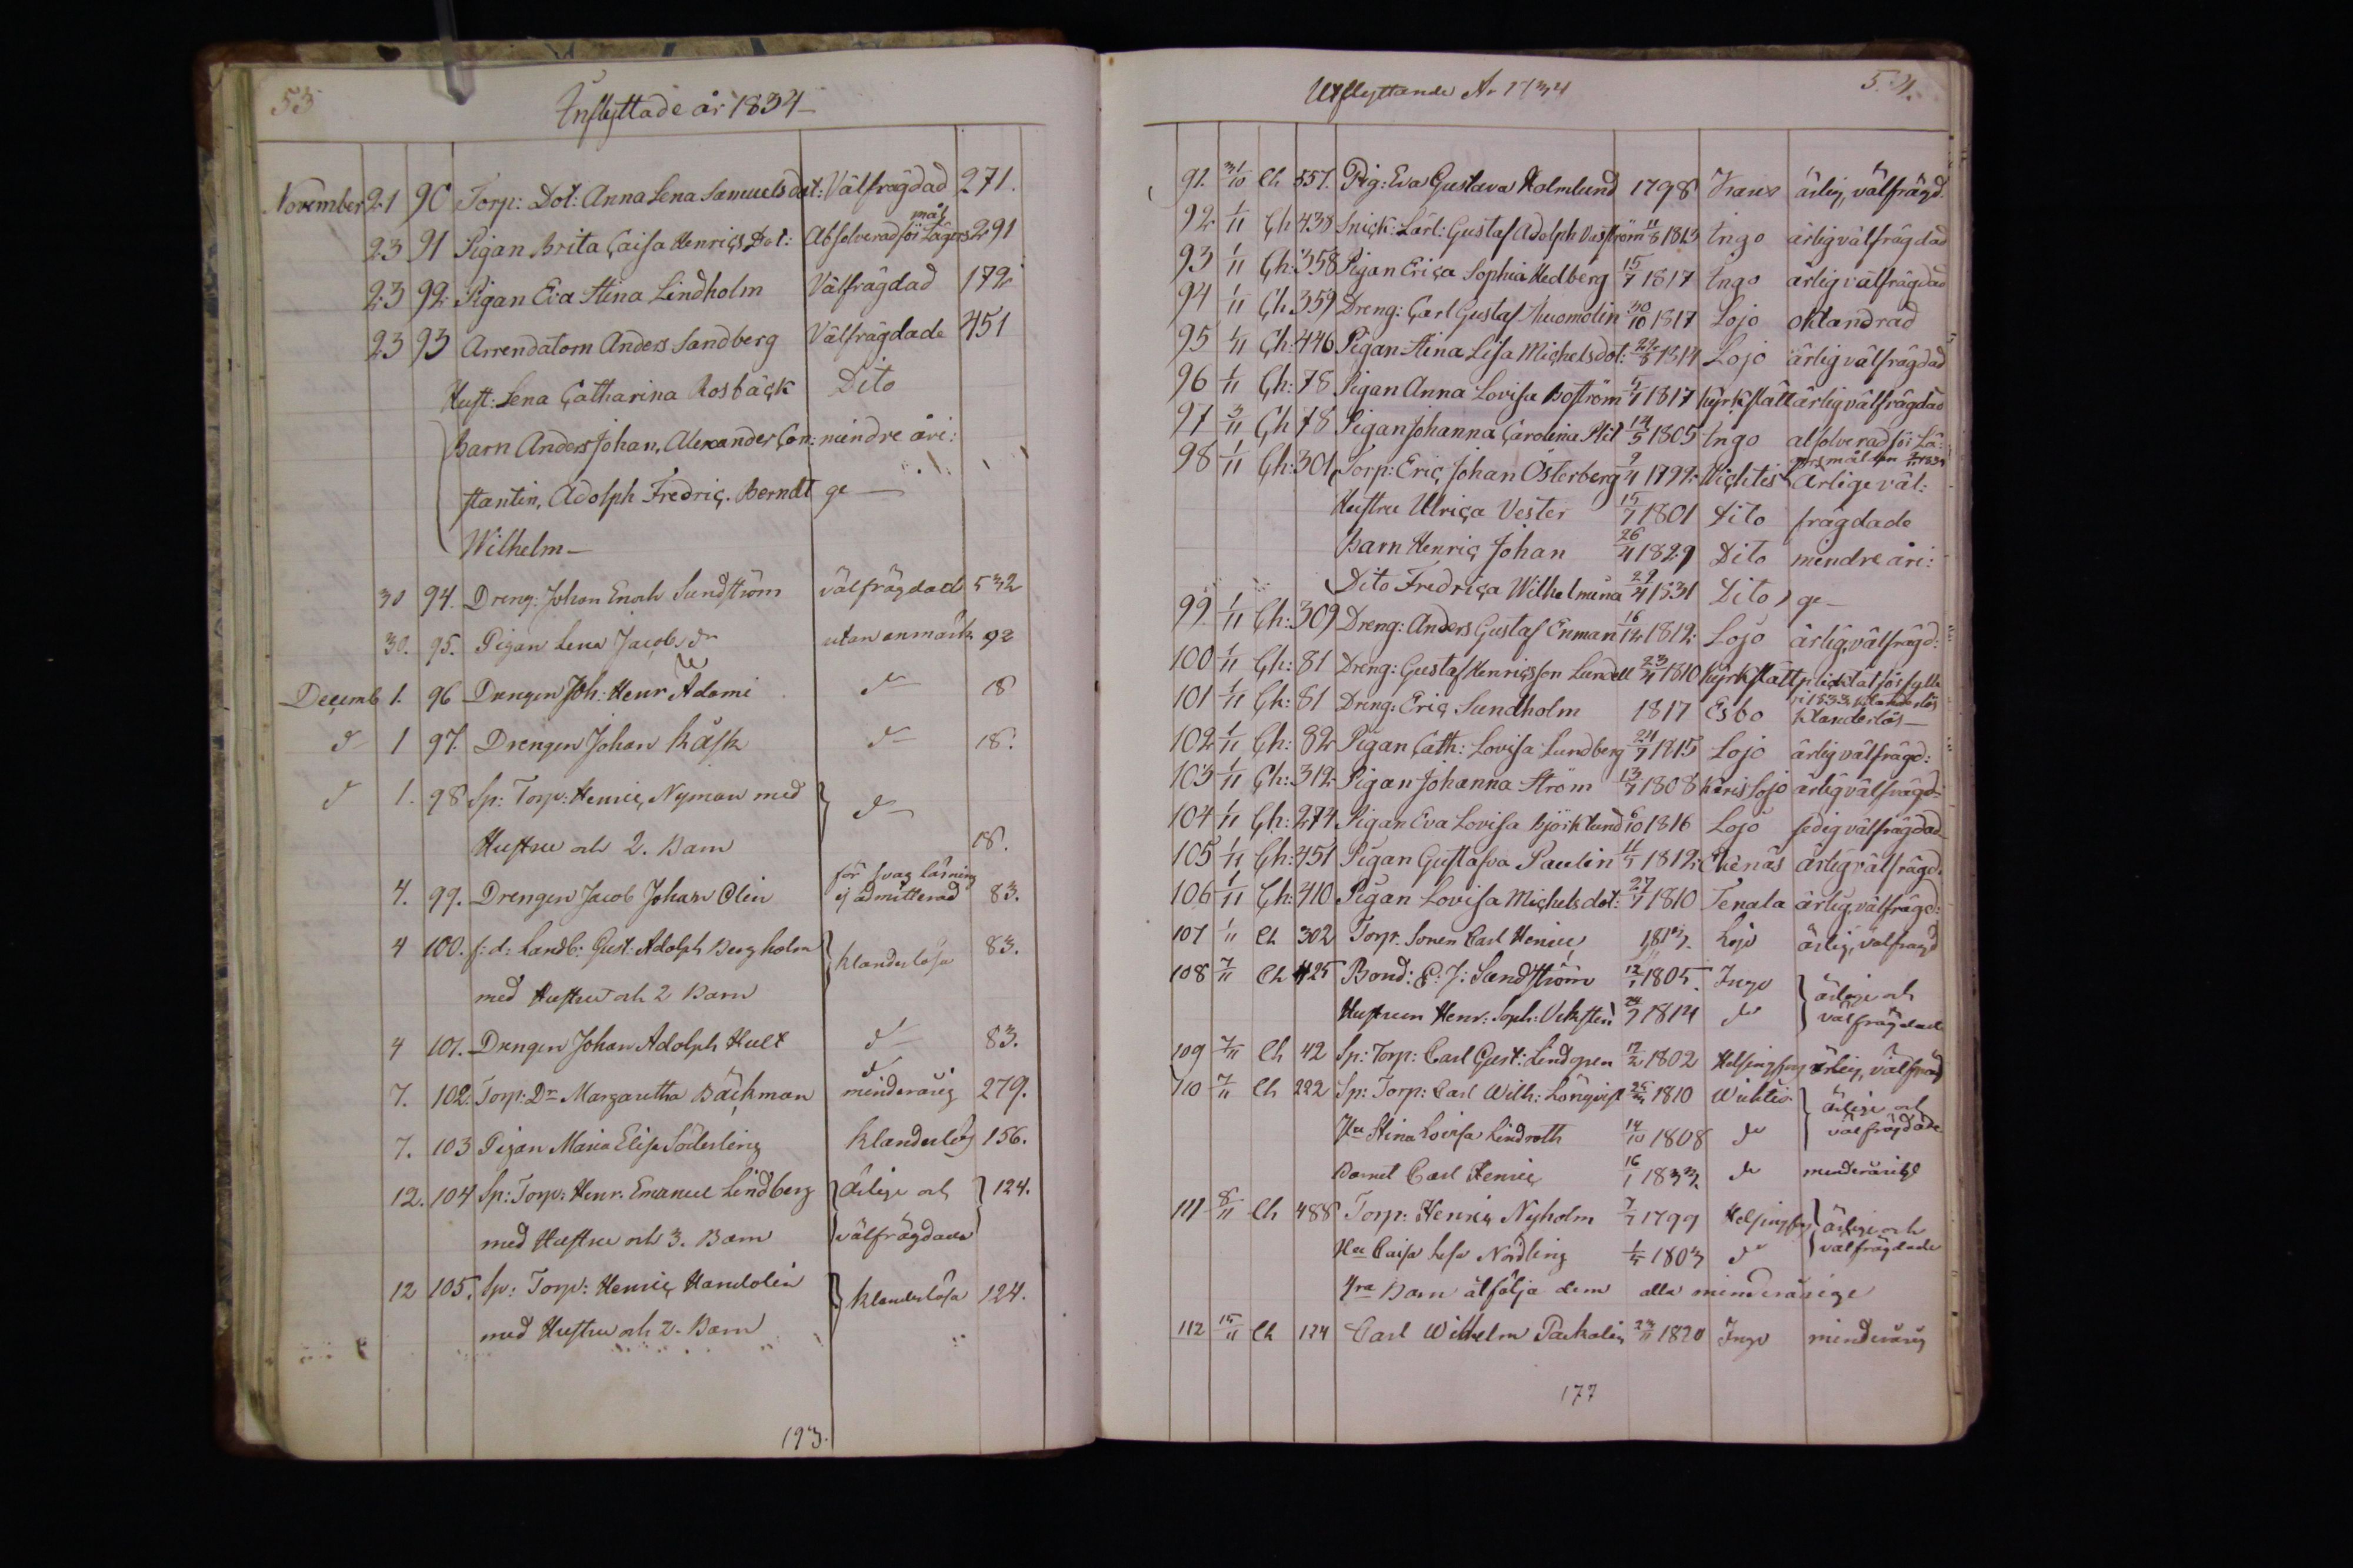 53
Inflyttade år 1834
November 21 90 Torp: Dot: Anna Lena Samuelsdot: Välfrägdad 271.
23 91 Pigan Brita Caisa Henrics Dot: Absolverad för Lägersmål 291
23 92 Pigan Eva Stina Lindholm Välfrägdad 172
23 93 Arrendatorn Anders Sandberg Välfrägdade 451
Hust: Lena Catharina Rosbäck Dito
Barn Anders Johan, Alexander Con: mindre åri:
stantin, Adolph Fredric, Berndt ge
Wilhelm
30 94. Dreng: Johan Enoch Sundström välfrägdad 532
30. 95. Pigan Lena Jacobs dr utan anmärk 92
Decemb 1. 96 Drengen Joh: Henr Adami d 18
d 1 97. Drengen Johan Käsk d 18.
d 1. 98 Sp: Torp: Henric Nyman med d
Hustru och 2. Barn 18.
4. 99. Drengen Jacob Johan Olin för svag läsning ej admitterad 83.
4 100. f: d: Landb: Gust: Adolph Bergholm klanderlösa 83.
med Hustru och 2 Barn
4 101. Drengen Johan Adolph Hult d 83.
7. 102. Torp: Dr Margaretha Bäckman d minderårig 279.
7. 103 Pigan Maria Elisa Söderling klanderlös 156.
12. 104 Sp: Torp: Henr. Emanuel Lindberg ärlige och 124.
med Hustru och 3. Barn välfrägdade
12 105. Sp: Torp: Henric Handolin klanderlösa 124.
med Hustru och 2. Barn
193.
Utflyttande År 1734
54.
91. 31/10 Ch 557. Pig: Eva Gustava Holmlund 1798 ärlig, välfrägd.
92 1/11 Ch 438 Snick: Lärl: Gustaf Adolph Vaström 11/6 1813 Ingo ärlig välfrägdad
93 1/11 Ch: 358 Pigan Erica Sophia Hedberg 15/7 1817 Ingo ärlig välfrägdad
94 1/11 Ch 359 Dreng: Carl Gustaf 30/10 1817 Lojo oklandrad
95 1/11 Ch: 446 Pigan Stina Lisa Michelsdot: 22/8 1814 Lojo ärlig välfrägdad
96 1/11 Ch: 78 Pigan Anna Lovisa Boström 5/1 1817 Kyrkslätt ärlig välfrägdad
97 3/11 Ch 78 Pigan Johanna Carolina 14/5 1805 Ingo absolverad för Lä:
gersmål den 2/11 1834
98 1/11 Ch: 301 Torp: Eric Johan Österberg 9/4 1799 Wichtis Ärlige väl:
Hustru Ulrica Vester 15/7 1801 Dito frägdade
Barn Henric Johan 26/4 1829 Dito mindre åri:
Dito Fredrica Wilhelmina 29/4 1831 Dito ge
99 1/11 Ch: 309 Dreng: Anders Gustaf Enman 16/12 1812 Lojo ärlig, välfrägd:
100 1/11 Ch: 81 Dreng: Gustaf Henricsson Lundell 23/4 1810 Kyrkslätt pliktat för fylle
ri 1833, klanderlös
101 1/11 Ch: 81 Dreng: Eric Sundholm 1817 Esbo klanderlös
102 1/11 Ch: 82 Pigan Cath: Lovisa Lundberg 24/7 1815 Lojo ärlig välfrägd:
103 1/11 Ch: 312 Pigan Johanna Ström 13/7 1808 Karislojo ärlig välfrägd:
104 1/11 Ch: 274 Pigan Eva Lovisa Björklund 6/10 1816 Lojo sedig välfrägdad
105 1/11 Ch: 451 Pigan Gustafva Paulin 11/5 1812 Ekenäs ärlig välfrägd.
106 1/11 Ch: 410 Pigan Lovisa Michelsdot: 27/7 1810 Tenala ärlig, välfrägd:
107 1/11 Ch 302 Torp. Sonen Carl Henric Lojo ärlig, välfrägd
108 7/11 Ch 425 Bond: E: J: Sandström 12/1 1805. Ingo ärlige och
Hustrun Henr: Soph: 24/7 1814 d välfrägdade
109 7/11 Ch 42 Sp: Torp: Carl Gust: Lindgren 17/2 1802 Helsingfors ärlig, välfräd
110 7/11 Ch 222 Sp: Torp: Carl Wilh: Lönqvist 1810 Wichtis ärlige och
Hu Stina Lovisa Lindroth 14/10 1808 d välfrägdade
Barnet Carl Henric 16/1 1833. d minderårigt
111 8/11 Ch 488 Torp: Henric Nyholm 7/7 1799 Helsingfors ärlige och
Hu Caisa Lisa Nordling 1/5 1803 d välfrägdade
4ra Barn åtfölja dem alla minderårige
112 15/11 Ch 124 Carl Wilhelm 23/11 1820 Ingo minderårig
177